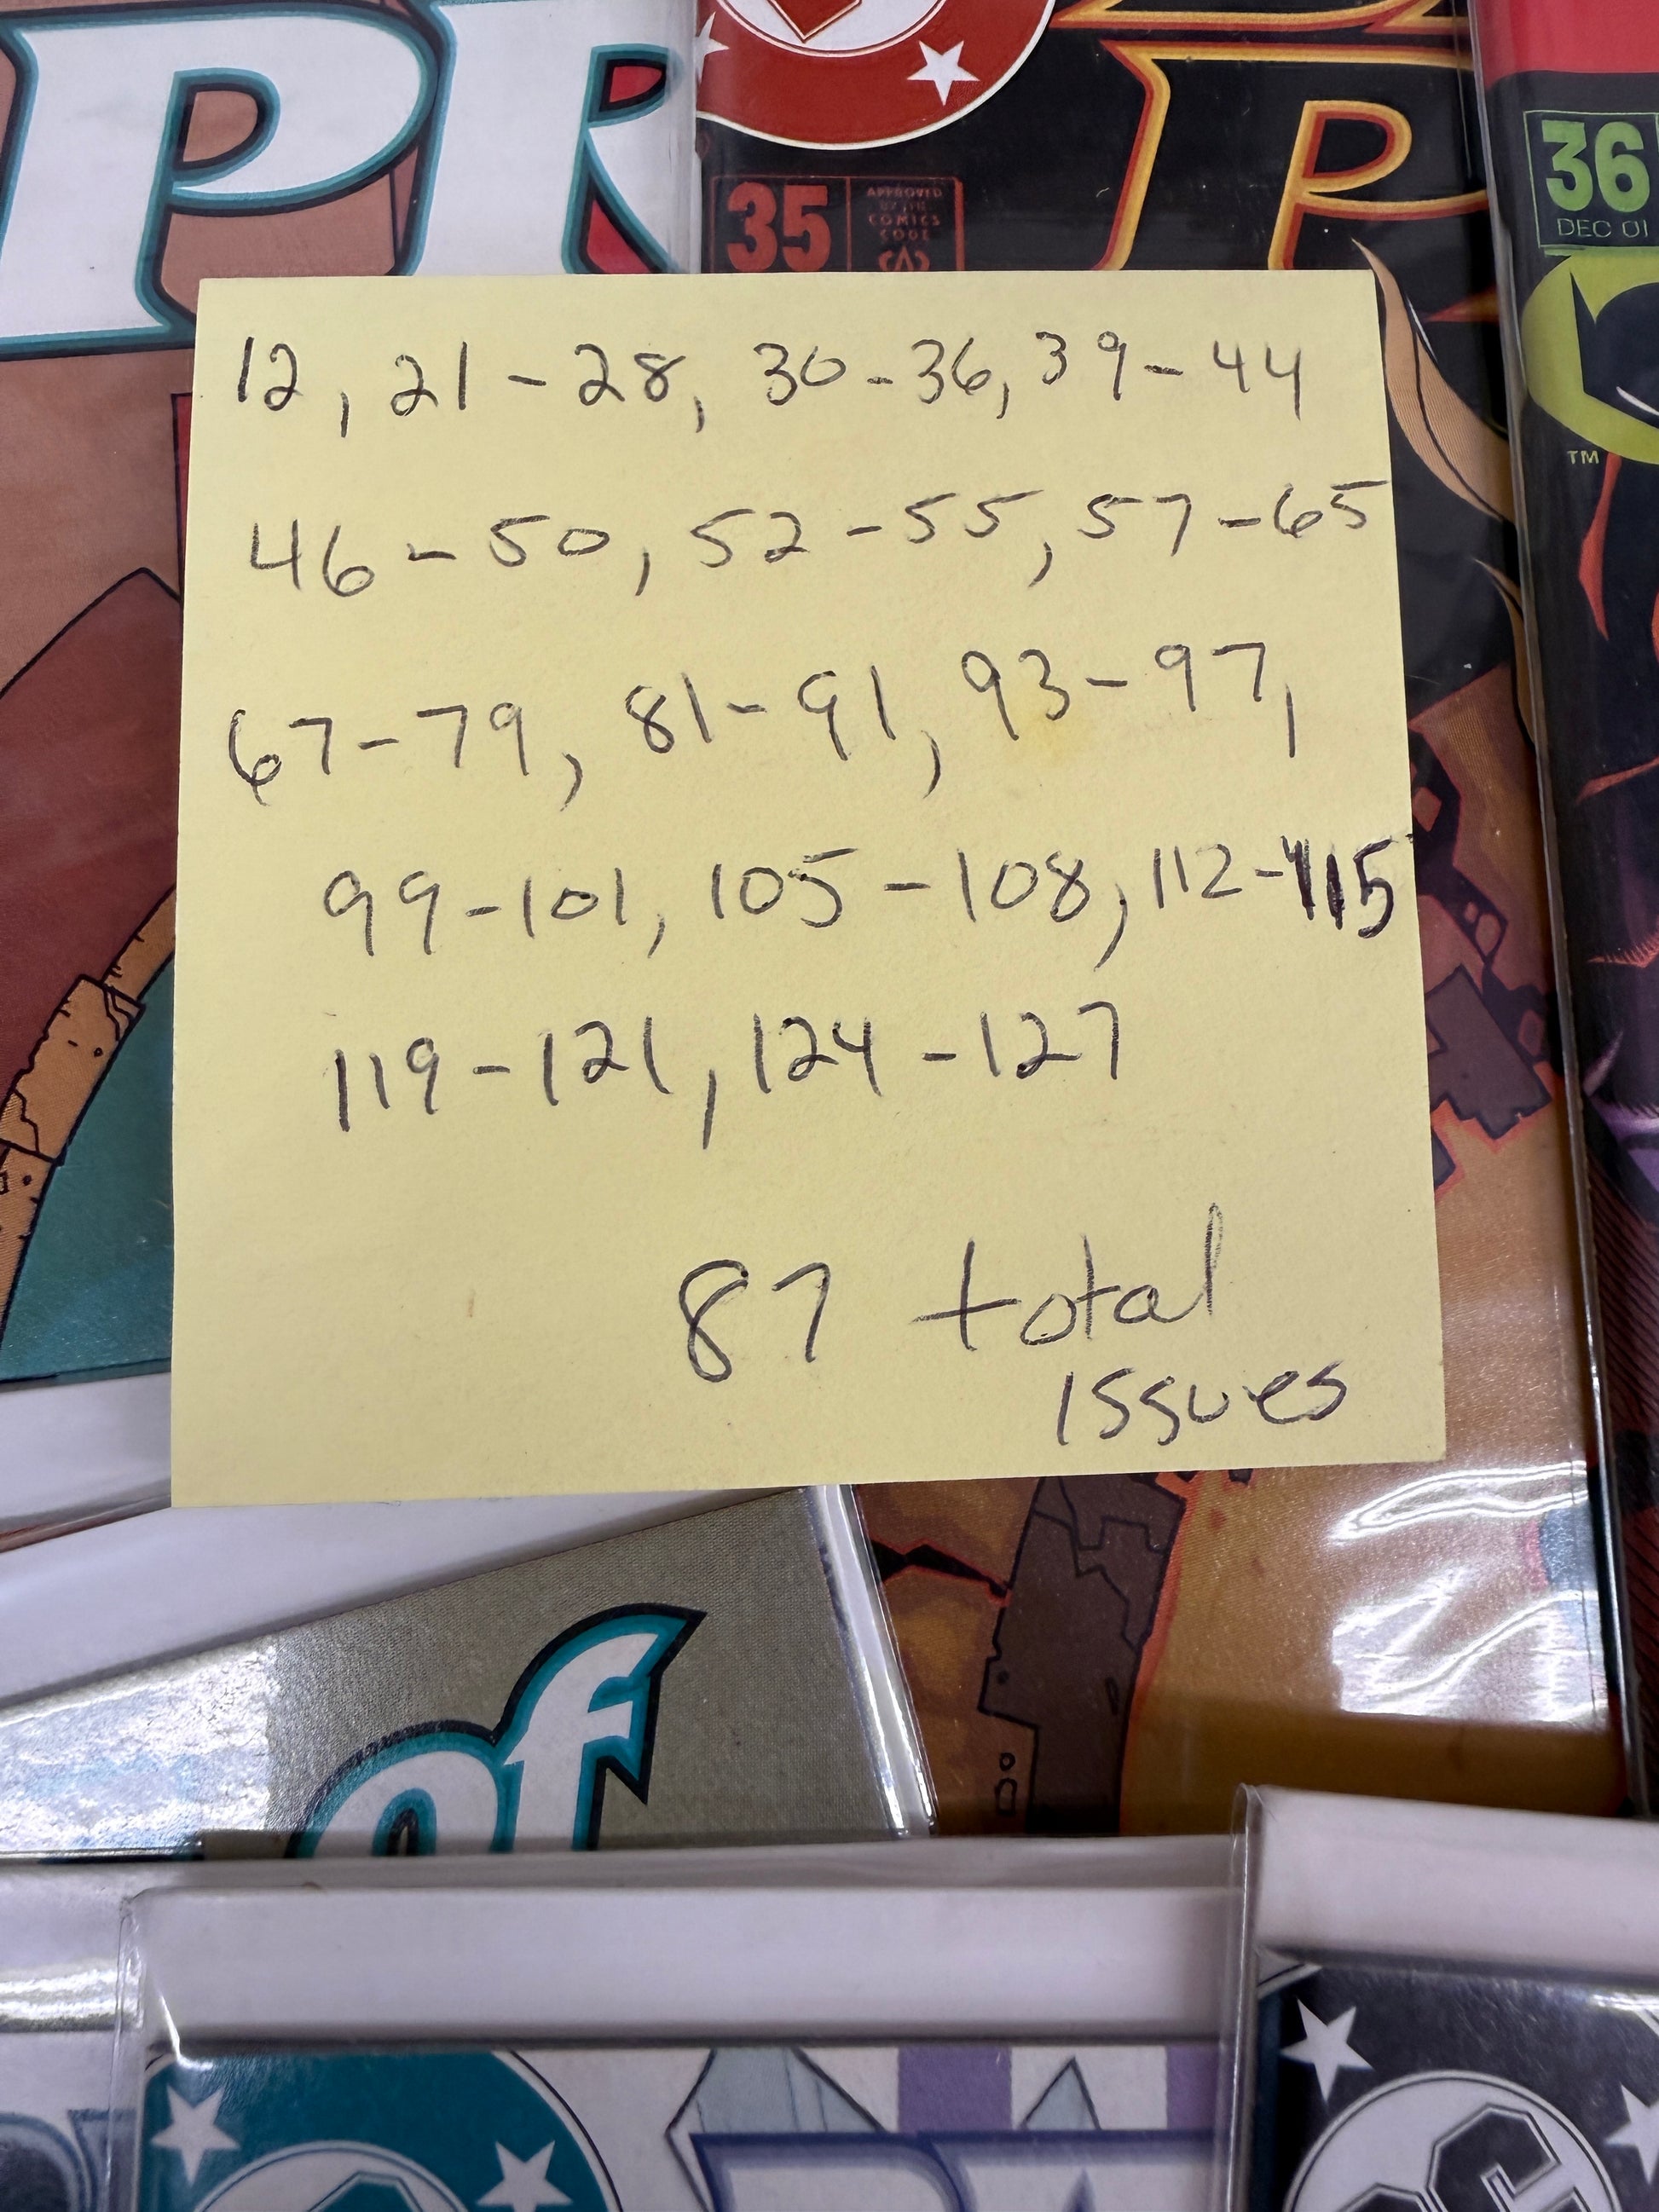 PR
35
APPROVED
BY THE
COMICS
CODE
P
36
DEC 01
TM
12, 21-28, 30-36, 39-44
46-50, 52-55, 57-65
67-79, 81-91, 93-97,
99-101, 105-108, 112-115
119-121, 124-127
87 total
issues
of